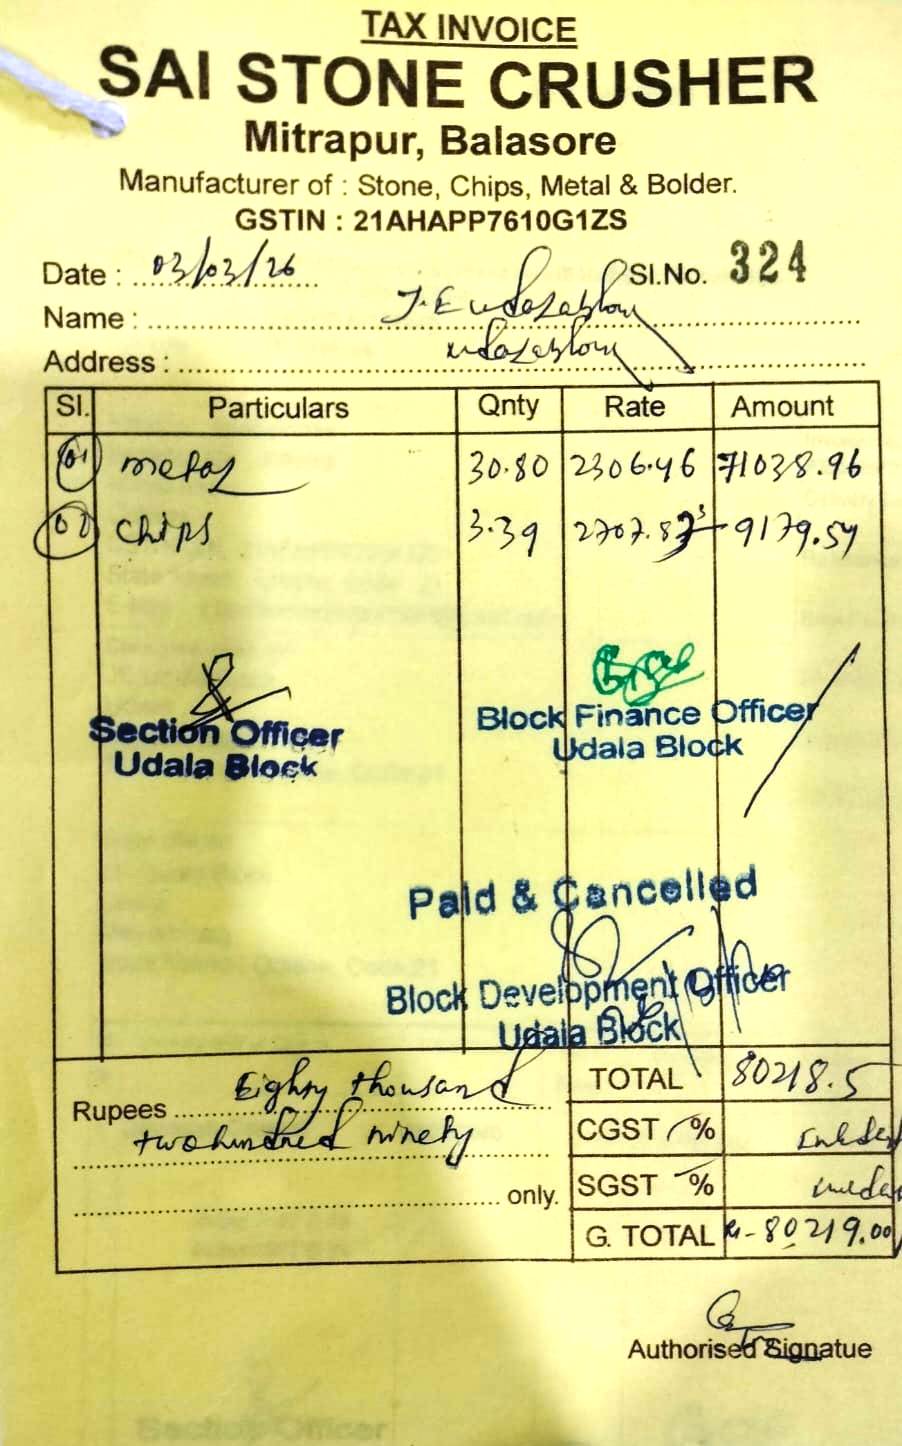 TAX INVOICE
SAI STONE CRUSHER
Mitrapur, Balasore
Manufacturer of : Stone, Chips, Metal & Bolder.
GSTIN : 21AHAPP7610G1ZS
Date : 03/03/26 Sl.No. 324
Name : J.E
Address :
Sl. Particulars Qnty Rate Amount
01 metal 30.80 2306.46 71038.96
02 chips 3.39 2707.83 9179.54
Section Officer
Udala Block
Block Finance Officer
Udala Block
Paid & Cancelled
Block Development Officer
Udala Block
Rupees Eighty thousand
two hundred ninety
only.
TOTAL 80218.5
CGST %
SGST %
G. TOTAL 80219.00
Authorised Signatue
Section Officer